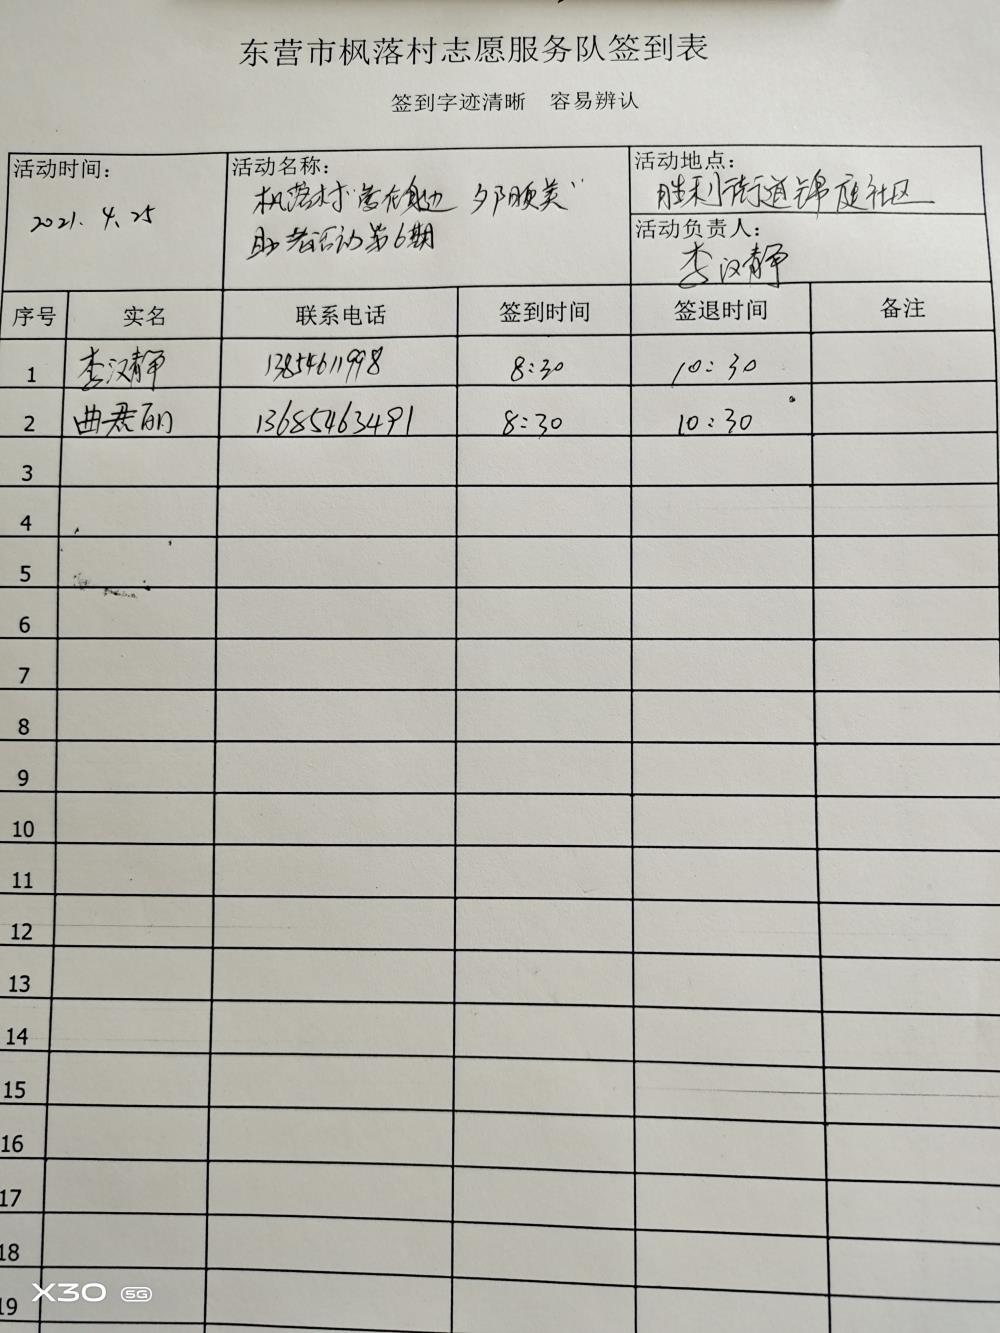 东营市枫落村志愿服务队签到表
签到字迹清晰 容易辨认
活动时间:
2021. 4. 25
活动名称:
枫落村"营在身边 夕阳颐美"
助老活动第6期
活动地点:
胜利街道锦庭社区
活动负责人:
李汉静
序号 实名 联系电话 签到时间 签退时间 备注
1 李汉静 13854611998 8:30 10:30
2 曲君丽 13685463491 8:30 10:30
3
4
5
6
7
8
9
10
11
12
13
14
15
16
17
18
19
X30 5G